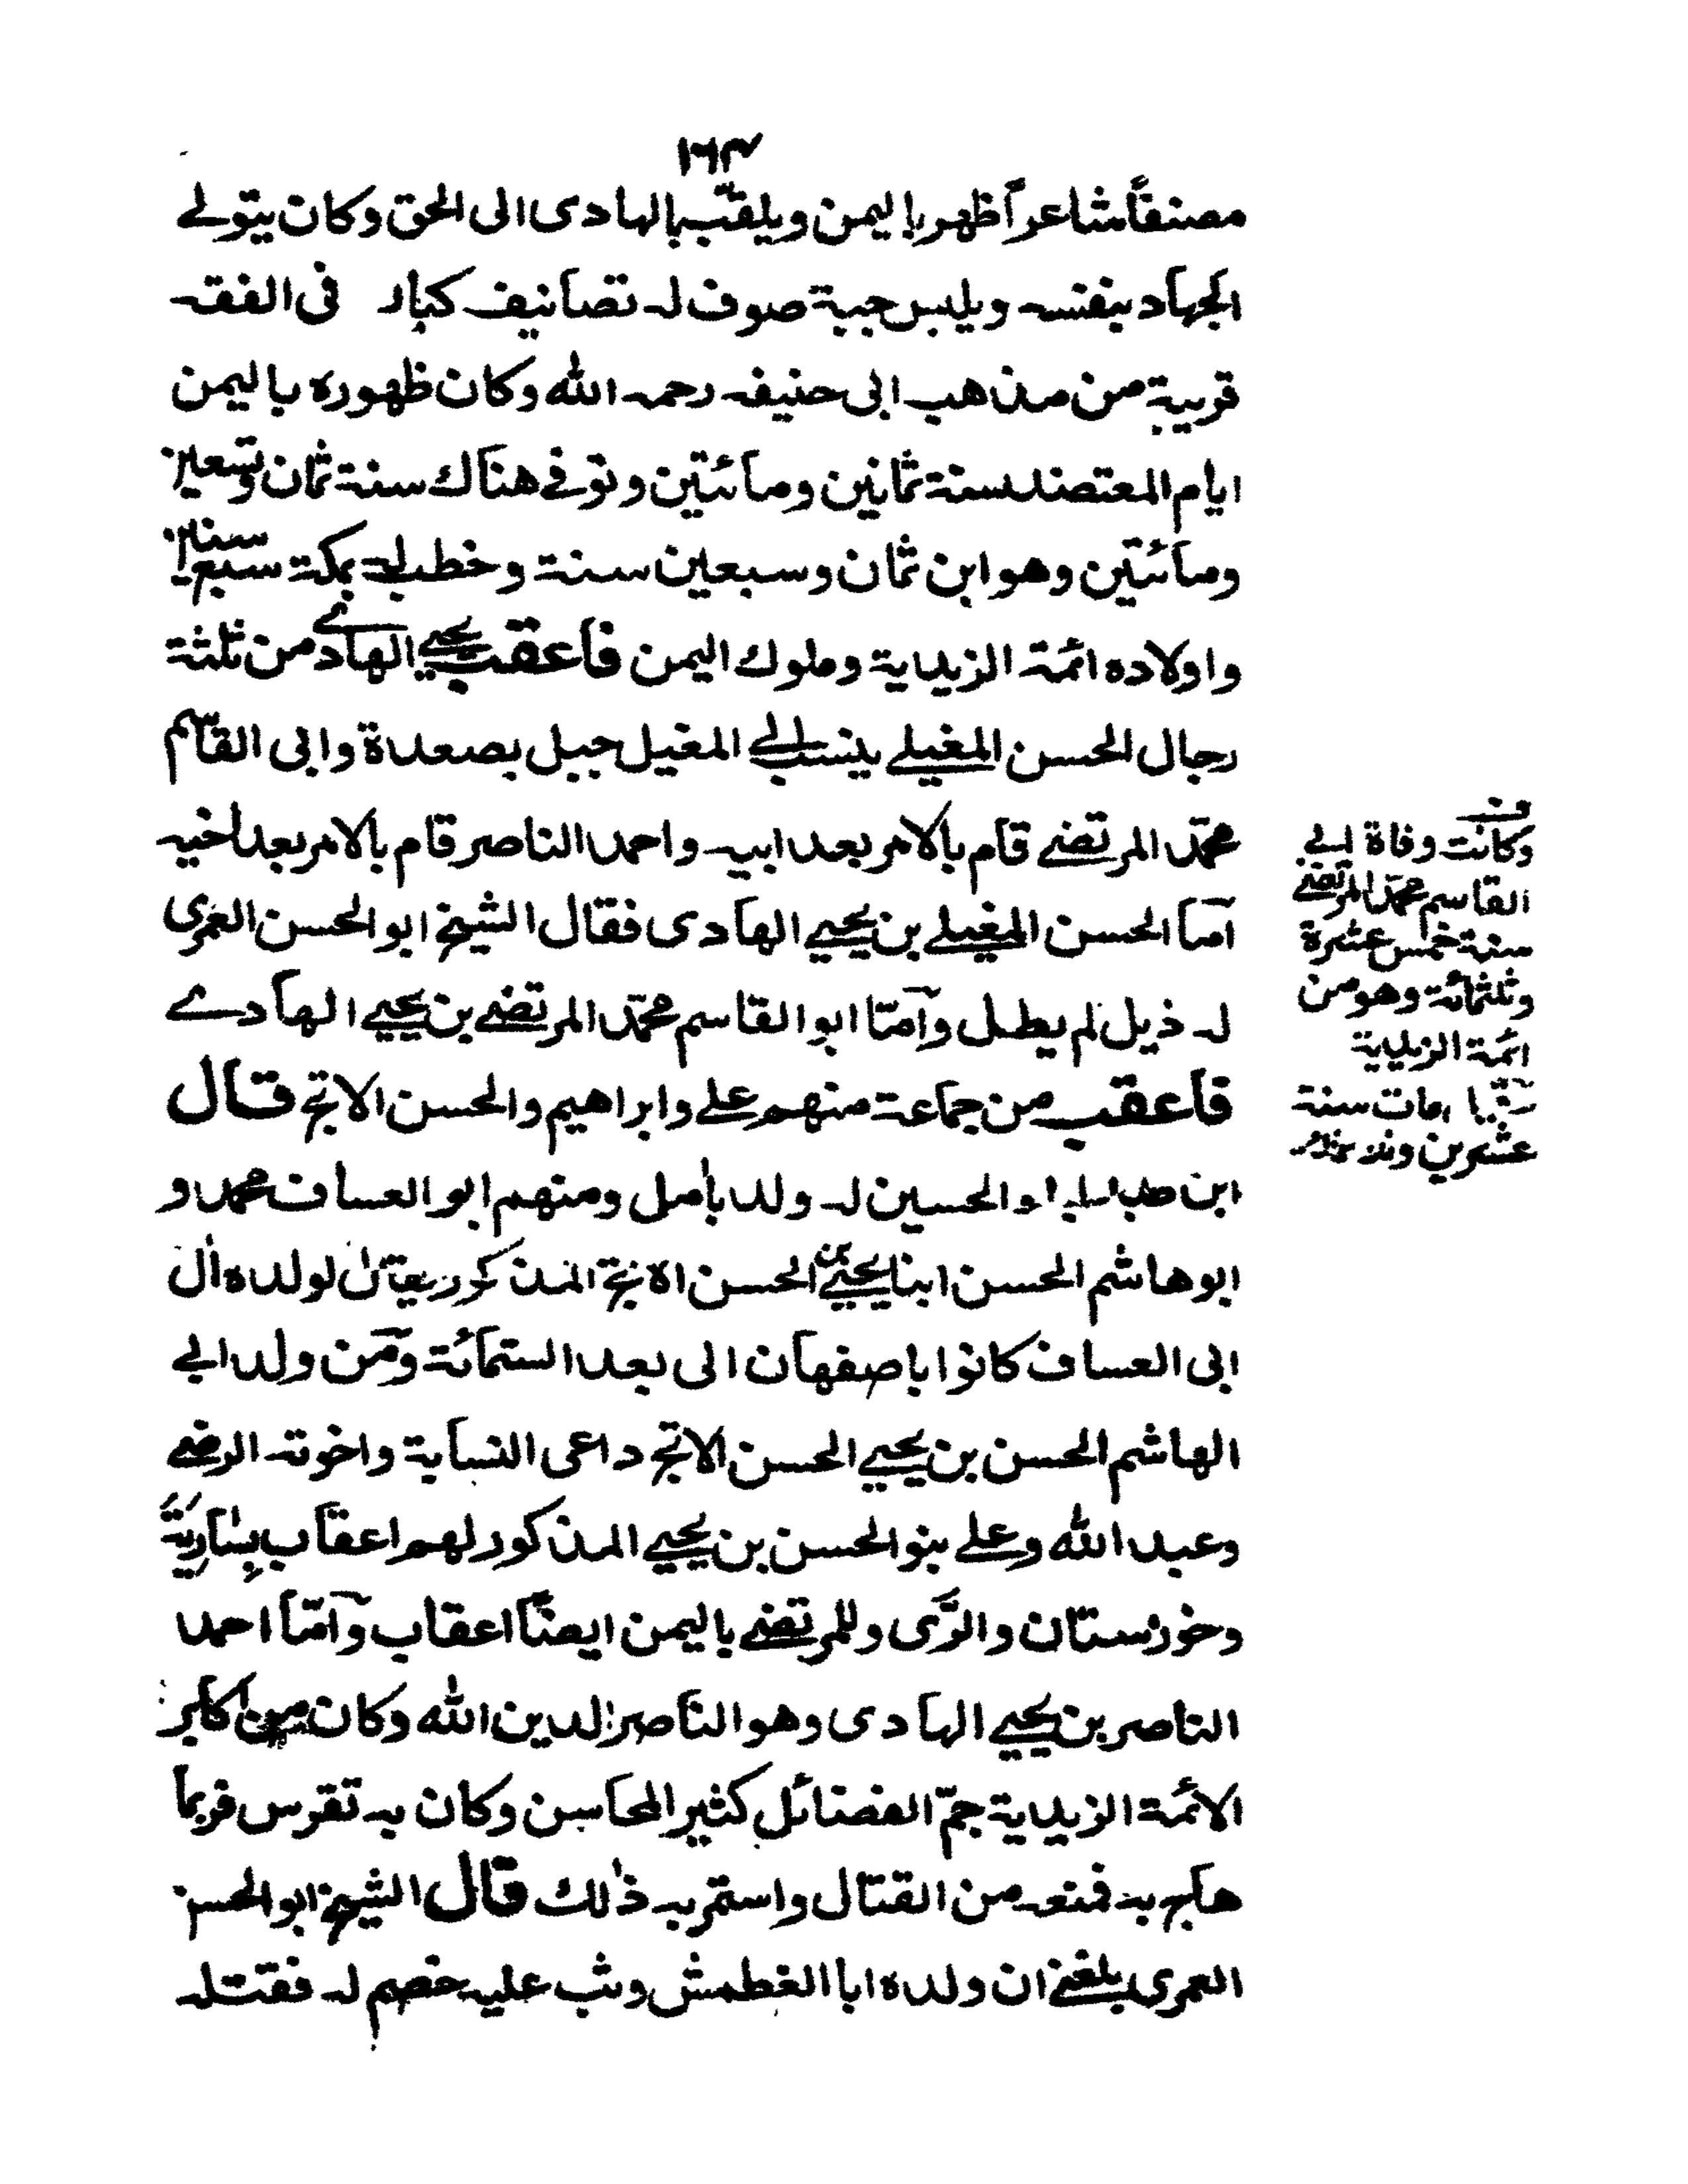 ١٦٣
مصنفاً شاعراً ظهر باليمن ويلقّب بالهادى الى الحق وكان يتولے
الجهاد بنفسه ويلبس جبة صوف له تصانيف كبار فى الفقه
قريبة من مذهب ابى حنيفه رحمه الله وكان ظهوره باليمن
ايام المعتضد لسنة ثمانين ومأئتين وتوفے هناك سنة ثمان وتسعين
ومأئتين وهو ابن ثمان وسبعين سنة وخطب له بمكة سبع سنين
واولاده ائمة الزيدية وملوك اليمن فأعقب يحيے الهادے من ثلثة
رجال الحسن المغيلے ينسب الے المغيل جبل بصعدة وابى القاسم
محمّد المرتضے قام بالامر بعد ابيه واحمد الناصر قام بالامر بعد اخيه
امّا الحسن المغيلے بن يحيے الهادى فقال الشيخ ابو الحسن العمرى
له ذيل لم يطل وامّا ابو القاسم محمّد المرتضے بن يحيے الهادے
فأعقب من جماعة منهم علے وابراهيم والحسن الاتج قال
ابن والحسين له ولد بأمل ومنهم ابو العساف محمد و
ابو هاشم الحسن ابنا يحيے بن الحسن الاتج المذكور يقال لولده ال
ابى العساف كانوا باصفهان الى بعد الستمائة ومن ولد ابے
الهاشم الحسن بن يحيے الحسن الاتج داعى النسابة واخوته الرضے
وعبد الله وعلے بنو الحسن بن يحيے المذكور لهم اعقاب بسارية
وخوزستان والرّى وللمرتضے باليمن ايضاً اعقاب وامّا احمد
الناصر بن يحيے الهادى وهو الناصر لدين الله وكان من اكابر
الائمة الزيدية جمّ الفضائل كثير المحاسن وكان به تقرس فربما
هاج به فمنعه من القتال واستمر به ذلك قال الشيخ ابو الحسن
العمرى بلغنے ان ولده ابا الغطمش وثب عليه خصم له فقتله
وكانت وفاة ابے
القاسم محمّد المرتضے
سنة خمس عشرة
وثلثمائة وهو من
ائمة الزيدية
مات سنة
عشرين وثلاثمائة